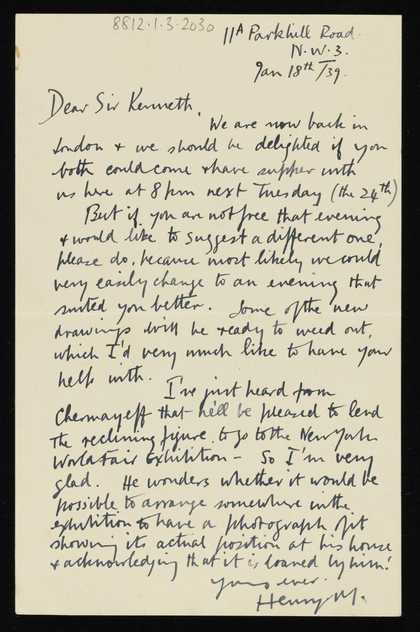 8812.1.3.2030
11A Parkhill Road.
N.W.3.
Jan 18th/39.
Dear Sir Kenneth,
We are now back in
London & we should be delighted if you
both could come & have supper with
us here at 8 pm next Tuesday (the 24th)
But if you are not free that evening
& would like to suggest a different one,
please do, because most likely we could
very easily change to an evening that
suited you better. Some of the new
drawings will be ready to weed out,
which I'd very much like to have your
help with.
I've just heard from
Chermayeff that he'll be pleased to lend
the reclining figure, to go to the New York
World Fair Exhibition – So I'm very
glad. He wonders whether it would be
possible to arrange somewhere in the
exhibition to have a photograph of it
showing its actual position at his house
& acknowledging that it is loaned by him.
Yours ever.
Henry M.